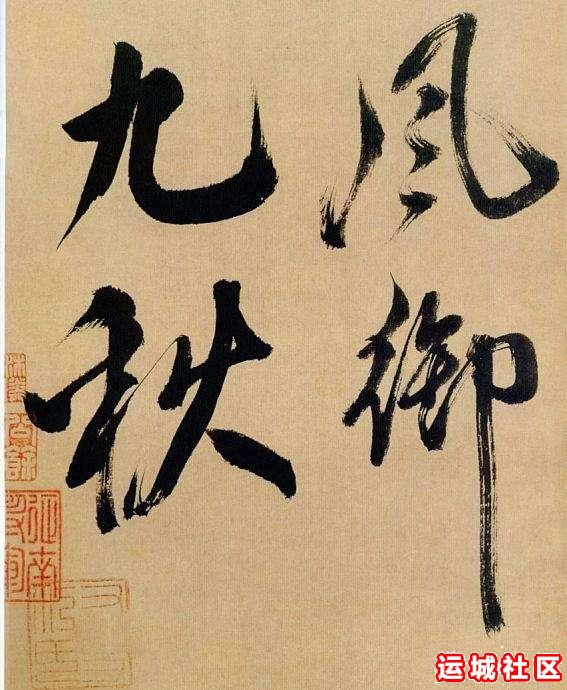 风御
九秋
运城社区